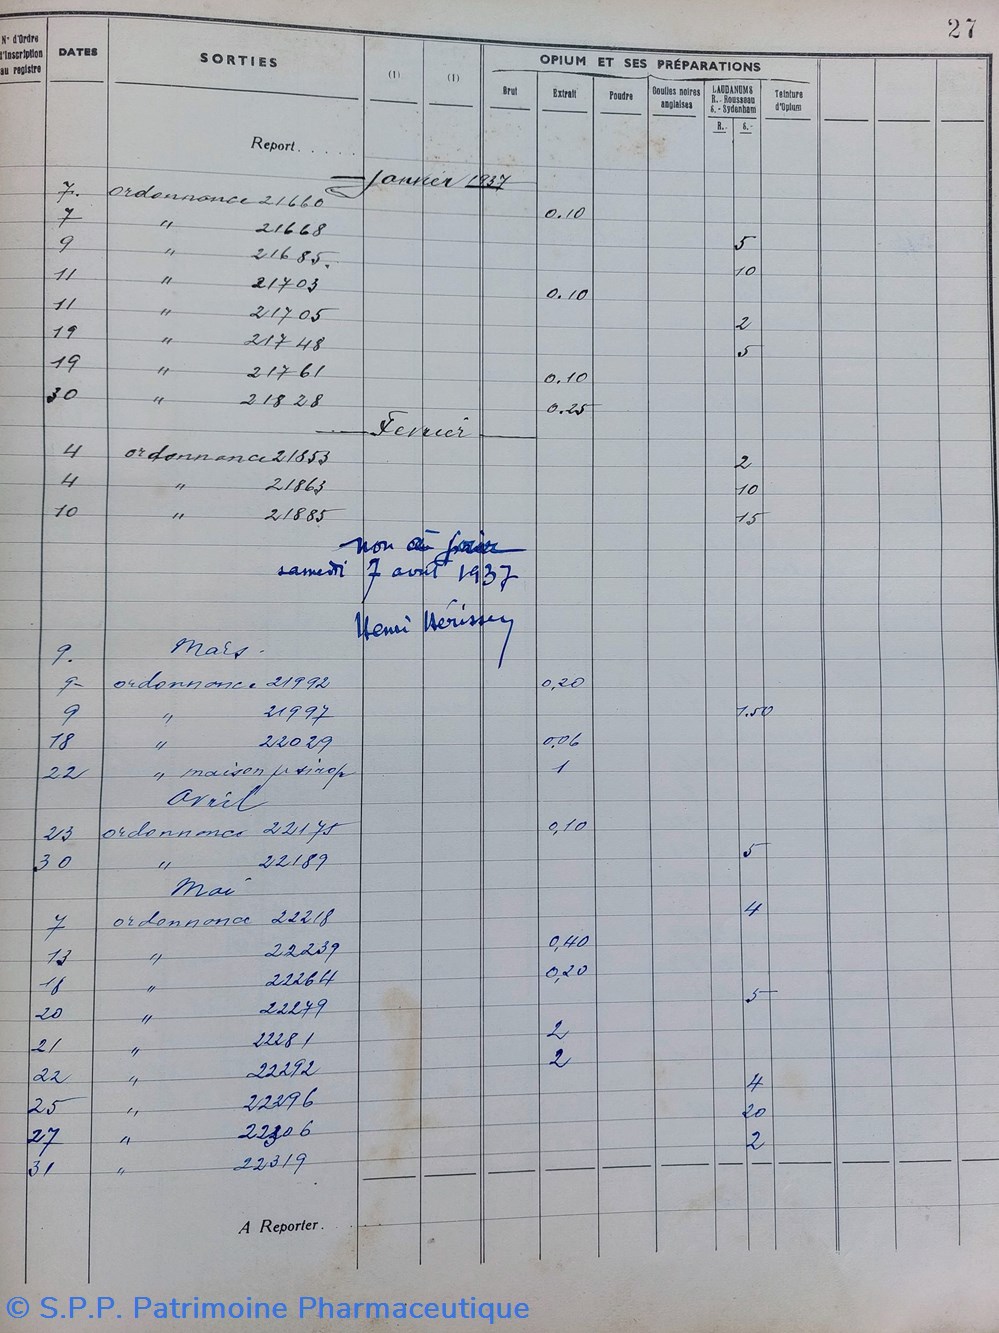 27
N° d'Ordre d'inscription au registre DATES SORTIES (1) (1) OPIUM ET SES PRÉPARATIONS
Brut Extrait Poudre Gouttes noires anglaises LAUDANUMS R.- Rousseau S.- Sydenham Teinture d'Opium
R.- S.-
Report.....
Janvier 1937
7. ordonnance 21660 0.10
7 " 21668 5
9 " 21685. 10
11 " 21703 0.10
11 " 21705 2
19 " 21748 5
19 " 21761 0.10
30 " 21828 0.25
Fevrier
4 ordonnance 21853 2
4 " 21863 10
10 " 21885 15
non à jour
samedi 7 avril 1937
Henri Hérissey
9. Mars.
9 ordonnance 21992 0,20
9 " 21997 1.50
18 " 22029 0.06
22 " maison pr sirop 1
Avril
23 ordonnance 22175 0,10
30 " 22189 5
Mai
7 ordonnance 22218 4
13 " 22239 0,40
18 " 22264 0,20
20 " 22279 5
21 " 22281 2
22 " 22292 2
25 " 22296 4
27 " 22306 20
31 " 22319 2
A Reporter.
© S.P.P. Patrimoine Pharmaceutique